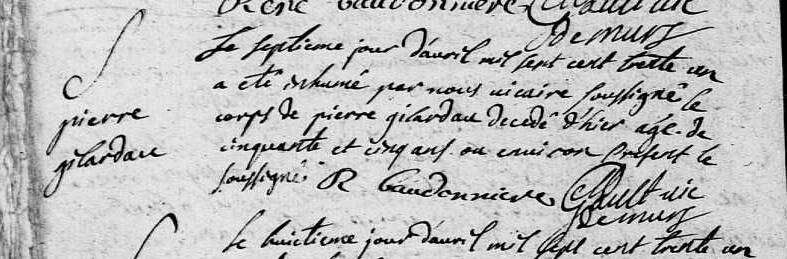 René Gaudonniere Gault vic
Demurs
S
pierre
gilardau
Le septieme jour d'avril mil sept cent trente un
a eté inhumé par nous vicaire soussigné le
corps de pierre gilardau decedé d'hier agé de
cinquante et cinq ans ou environ present le
soussigné R Gaudonniere Gault vic
Demurs
Le huitieme jour d'avril mil sept cent trente un